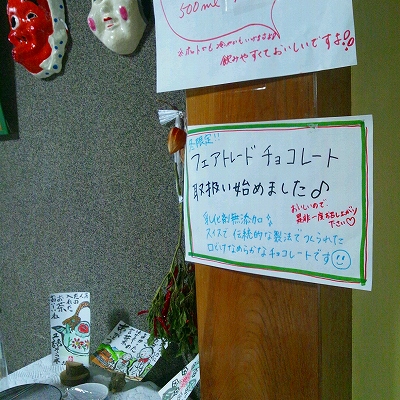 500ml
飲みやすくておいしいですよ!!
冬限定!!
フェアトレード チョコレート
取扱い始めました♪
おいしいので
是非一度お召し上がり
下さい♡
乳化剤無添加♪
スイスで 伝統的な製法でつくられた
口どけなめらかなチョコレートです☺